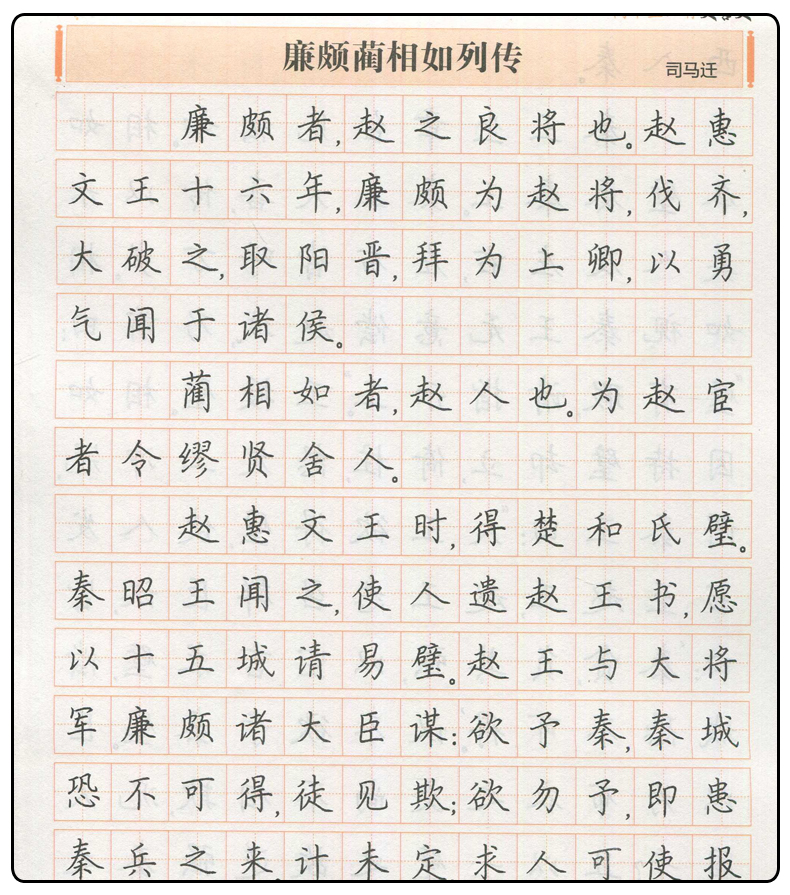 廉颇蔺相如列传
司马迁
廉颇者,赵之良将也。赵惠
文王十六年,廉颇为赵将,伐齐,
大破之,取阳晋,拜为上卿,以勇
气闻于诸侯。
蔺相如者,赵人也。为赵宦
者令缪贤舍人。
赵惠文王时,得楚和氏璧。
秦昭王闻之,使人遗赵王书,愿
以十五城请易璧。赵王与大将
军廉颇诸大臣谋:欲予秦,秦城
恐不可得,徒见欺;欲勿予,即患
秦兵之来,计未定,求人可使报